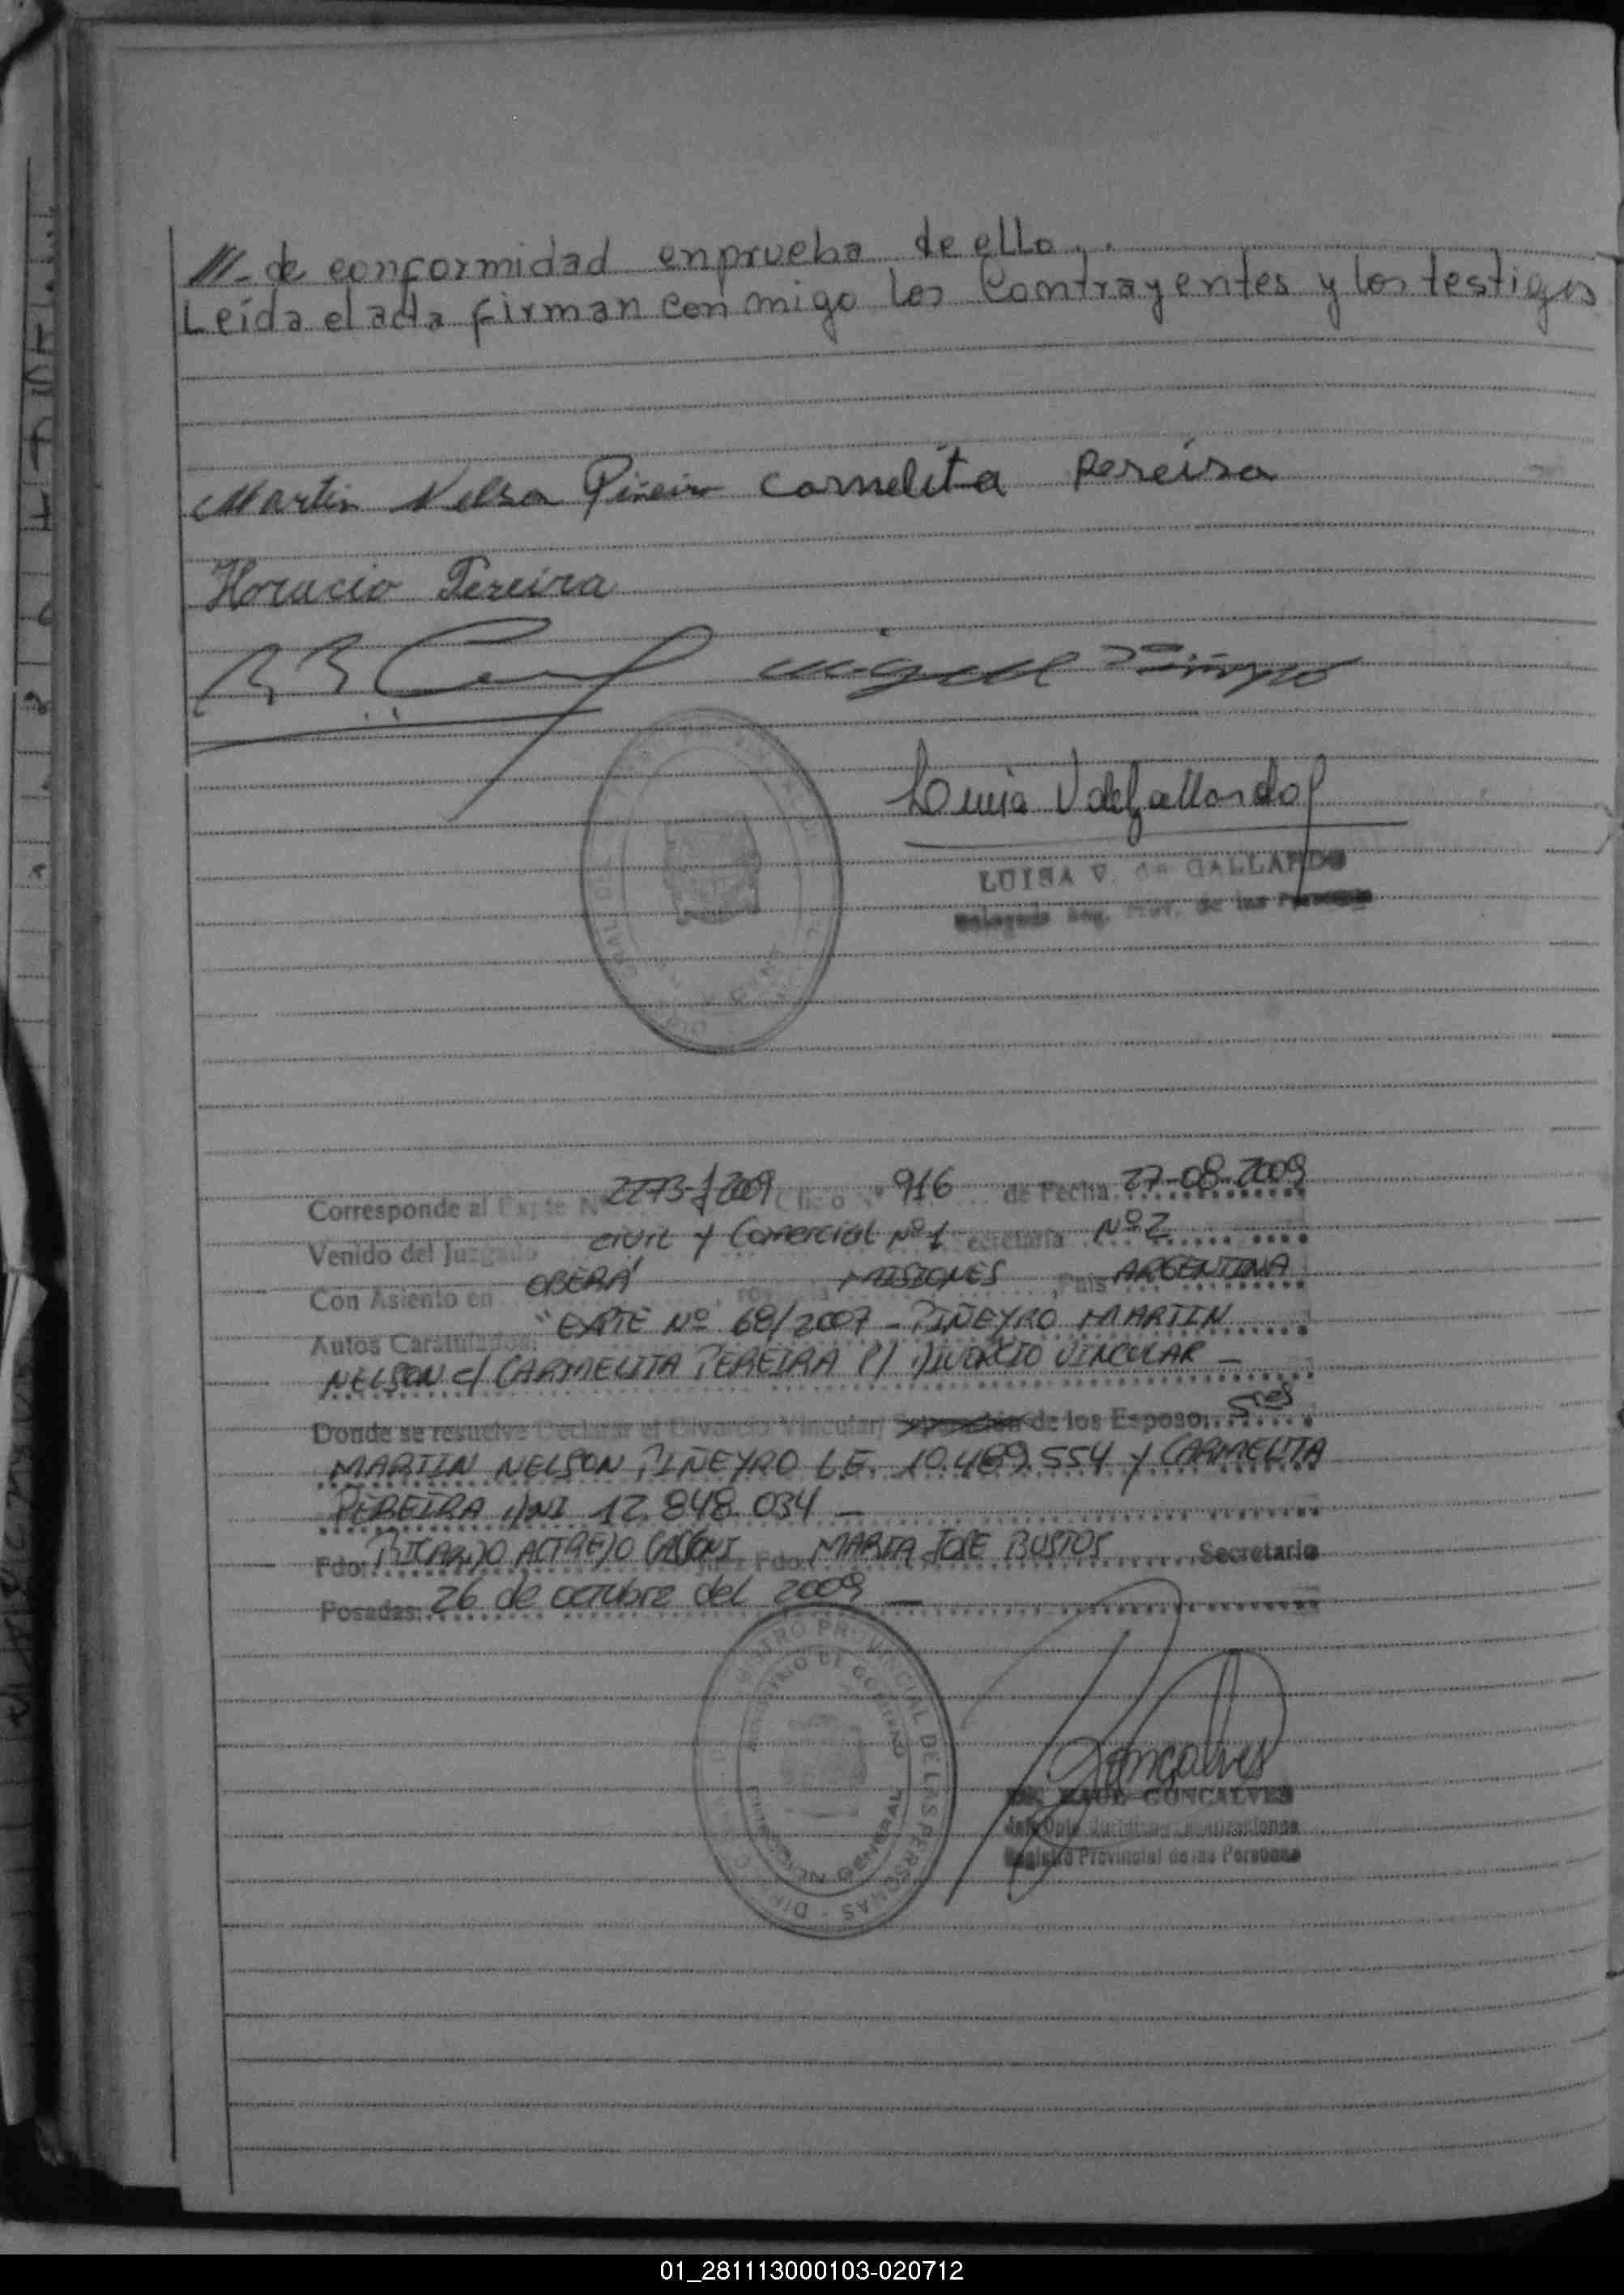 ///- de conformidad en prueba de ello..
Leída el acta firman con migo los Contrayentes y los testigos
Martin Nelson Piñeiro Carmelita Pereira
Horacio Pereira
Miguel Piñeyro
Luisa V de Gallardo
LUISA V. de GALLARDO
Delegada Reg. Prov. de las Personas
Corresponde al Expte Nº 2273-J-2009 Oficio Nº 916 de Fecha 27-08-2009
Venido del Juzgado Civil y Comercial Nº 1 Secretaría Nº 2
Con Asiento en OBERÁ, Provincia MISIONES, País ARGENTINA
Autos Caratulados: "EXPTE Nº 68/2007 - PIÑEYRO MARTIN
NELSON c/ CARMELITA PEREIRA P/ DIVORCIO VINCULAR -
Donde se resuelve Declarar el Divorcio Vincular/ de los Esposos: Sres
MARTIN NELSON PIÑEYRO L.E. 10.489.554 y CARMELITA
PEREIRA DNI 12.848.034 -
Fdo: RICARDO Fdo: MARIA JOSE BUSTOS Secretario
Posadas: 26 de octubre del 2009 -
REGISTRO PROVINCIAL DE LAS PERSONAS
MINISTERIO DE GOBIERNO
DIRECCION GENERAL
Goncalves
RAUL GONCALVES
Registro Provincial de las Personas
01_281113000103-020712